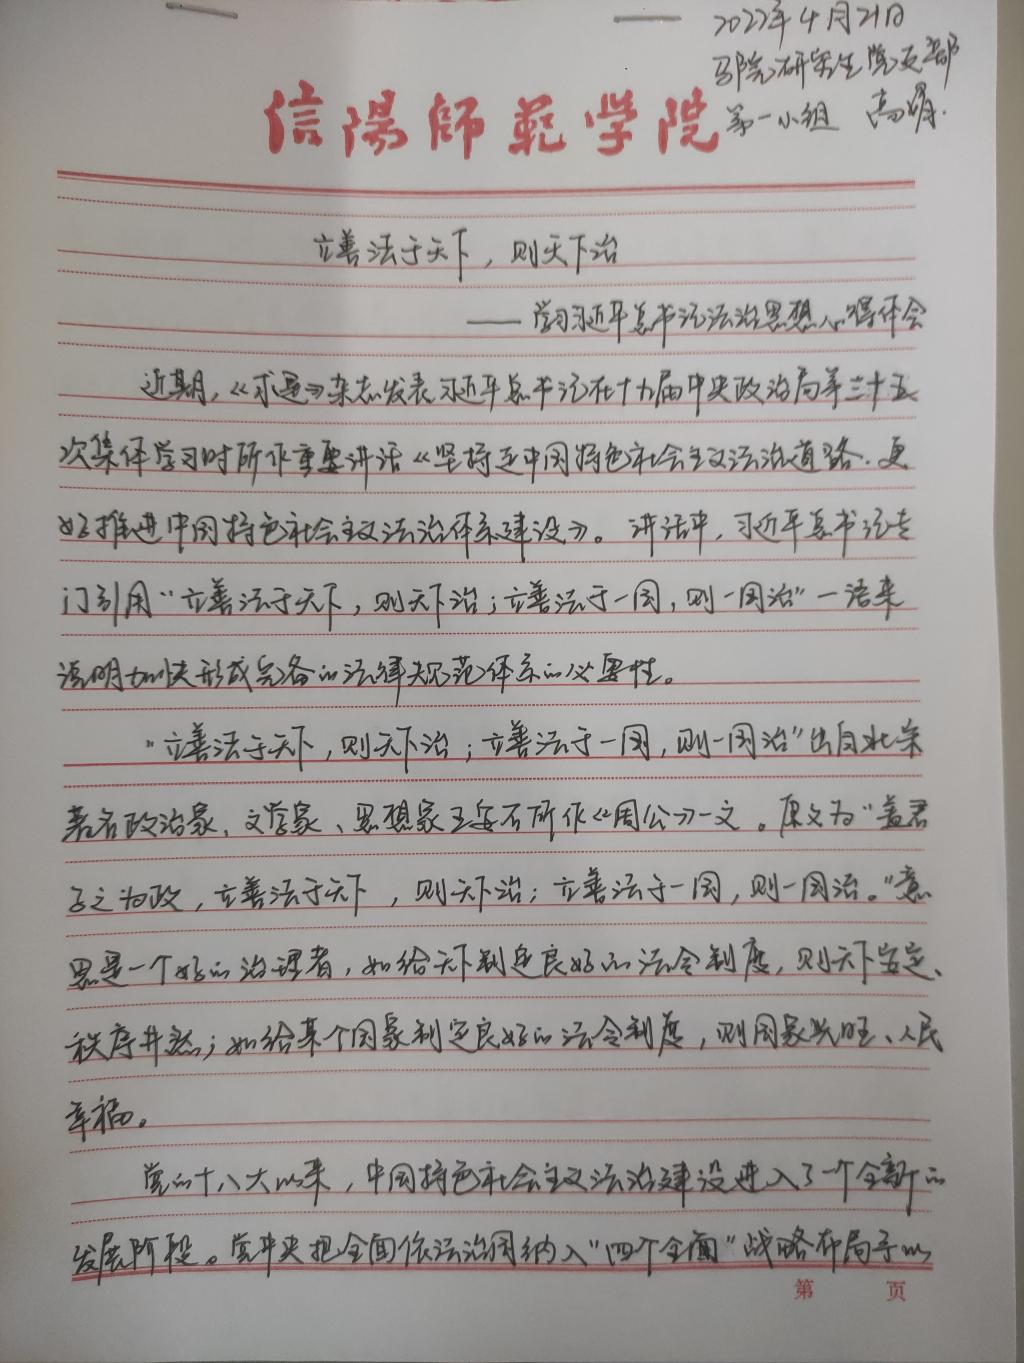 2022年4月21日
马院研究生党支部
信陽師範学院
第一小组 高娟.
立善法于天下，则天下治
——学习习近平总书记法治思想心得体会
近期，《求是》杂志发表习近平总书记在十九届中央政治局第三十五
次集体学习时所作重要讲话《坚持走中国特色社会主义法治道路.更
好推进中国特色社会主义法治体系建设》。讲话中，习近平总书记专
门引用“立善法于天下，则天下治；立善法于一国，则一国治”一语来
说明加快形成完备的法律规范体系的必要性。
“立善法于天下，则天下治；立善法于一国，则一国治”出自北宋
著名政治家、文学家、思想家王安石所作《周公》一文。原文为“盖君
子之为政，立善法于天下，则天下治；立善法于一国，则一国治。”意
思是一个好的治理者，如给天下制定良好的法令制度，则天下安定、
秩序井然；如给某个国家制定良好的法令制度，则国家兴旺、人民
幸福。
党的十八大以来，中国特色社会主义法治建设进入了一个全新的
发展阶段。党中央把全面依法治国纳入“四个全面”战略布局予以
第 页